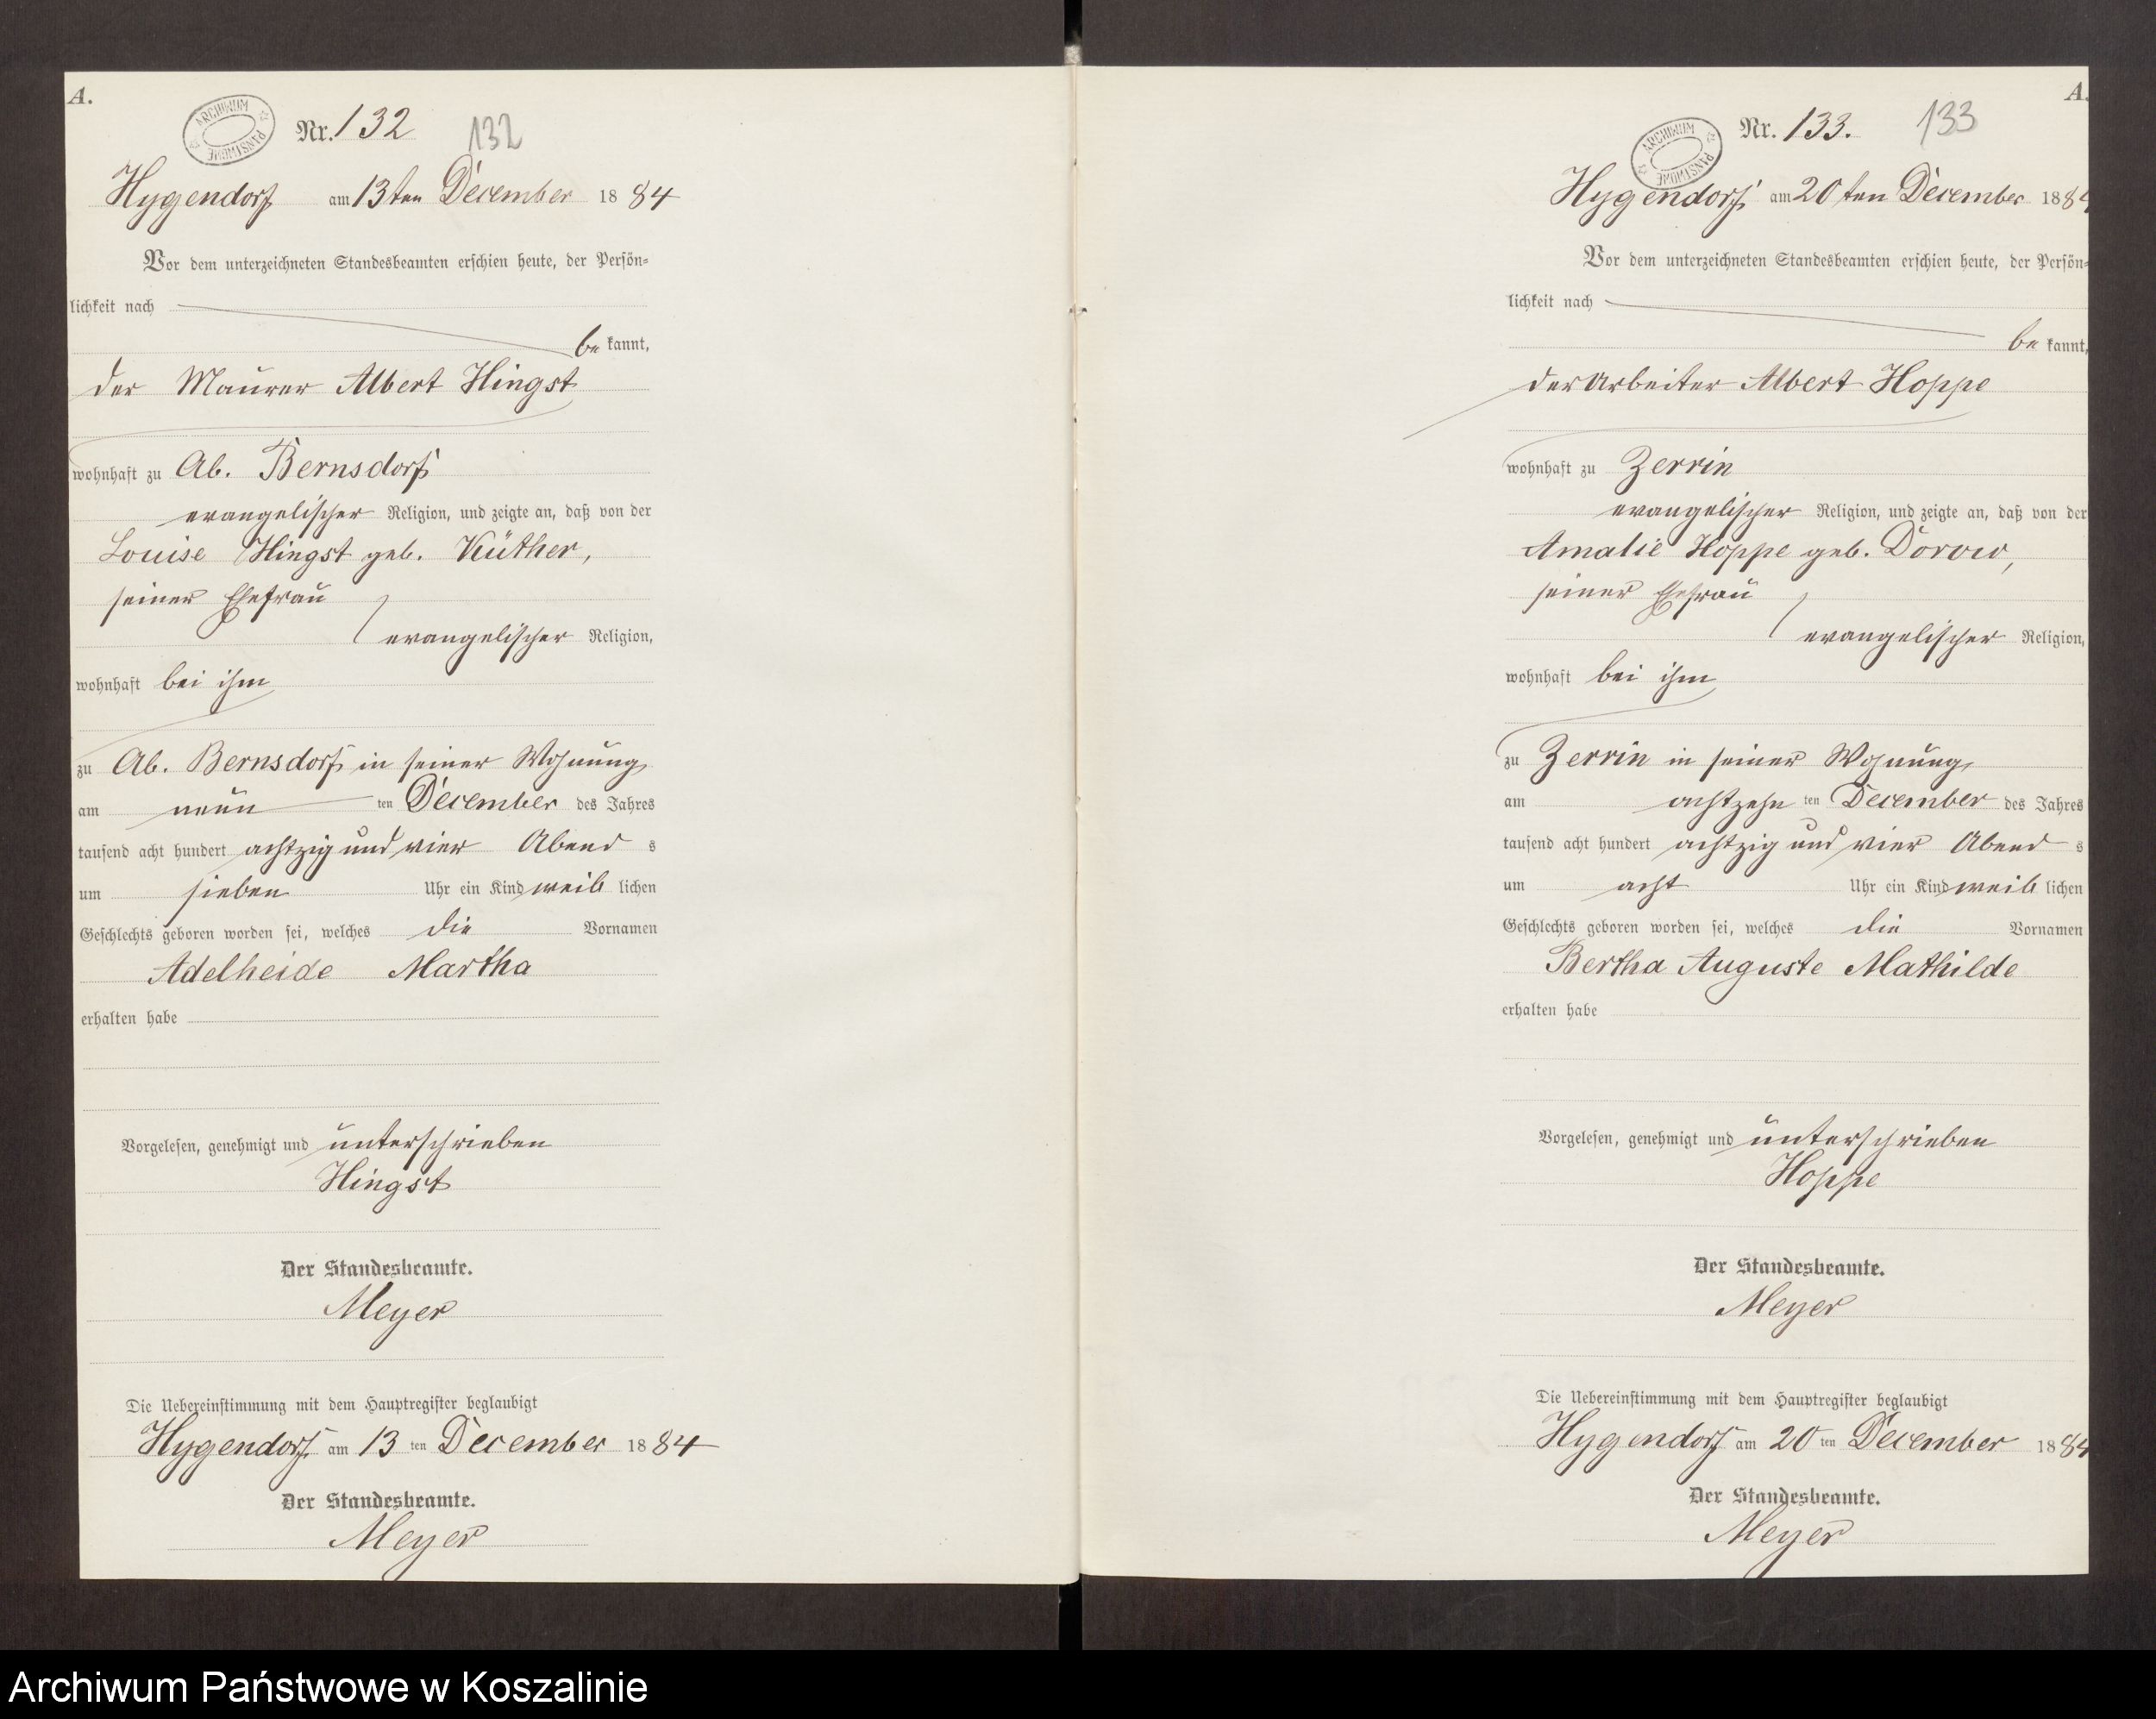 A.
ARCHIWUM PAŃSTWOWE
Nr. 132 132
Hygendorf am 13ten December 1884
Vor dem unterzeichneten Standesbeamten erschien heute, der Persön-
lichkeit nach
be kannt,
der Maurer Albert Hingst
wohnhaft zu Ab. Bernsdorf
evangelischer Religion, und zeigte an, daß von der
Louise Hingst geb. Küther,
seiner Ehefrau
evangelischer Religion,
wohnhaft bei ihm
zu Ab. Bernsdorf in seiner Wohnung
am neun ten December des Jahres
tausend acht hundert achtzig und vier Abend s
um sieben Uhr ein Kind weib lichen
Geschlechts geboren worden sei, welches die Vornamen
Adelheide Martha
erhalten habe
Vorgelesen, genehmigt und unterschrieben
Hingst
Der Standesbeamte.
Meyer
Die Uebereinstimmung mit dem Hauptregister beglaubigt
Hygendorf am 13 ten December 1884
Der Standesbeamte.
Meyer
A.
ARCHIWUM PAŃSTWOWE
Nr. 133. 133
Hygendorf am 20ten December 1884
Vor dem unterzeichneten Standesbeamten erschien heute, der Persön-
lichkeit nach
be kannt,
der Arbeiter Albert Hoppe
wohnhaft zu Zerrin
evangelischer Religion, und zeigte an, daß von der
Amalie Hoppe geb. Dorow,
seiner Ehefrau
evangelischer Religion,
wohnhaft bei ihm
zu Zerrin in seiner Wohnung
am achtzehn ten December des Jahres
tausend acht hundert achtzig und vier Abend s
um acht Uhr ein Kind weib lichen
Geschlechts geboren worden sei, welches die Vornamen
Bertha Auguste Mathilde
erhalten habe
Vorgelesen, genehmigt und unterschrieben
Hoppe
Der Standesbeamte.
Meyer
Die Uebereinstimmung mit dem Hauptregister beglaubigt
Hygendorf am 20 ten December 1884
Der Standesbeamte.
Meyer
Archiwum Państwowe w Koszalinie